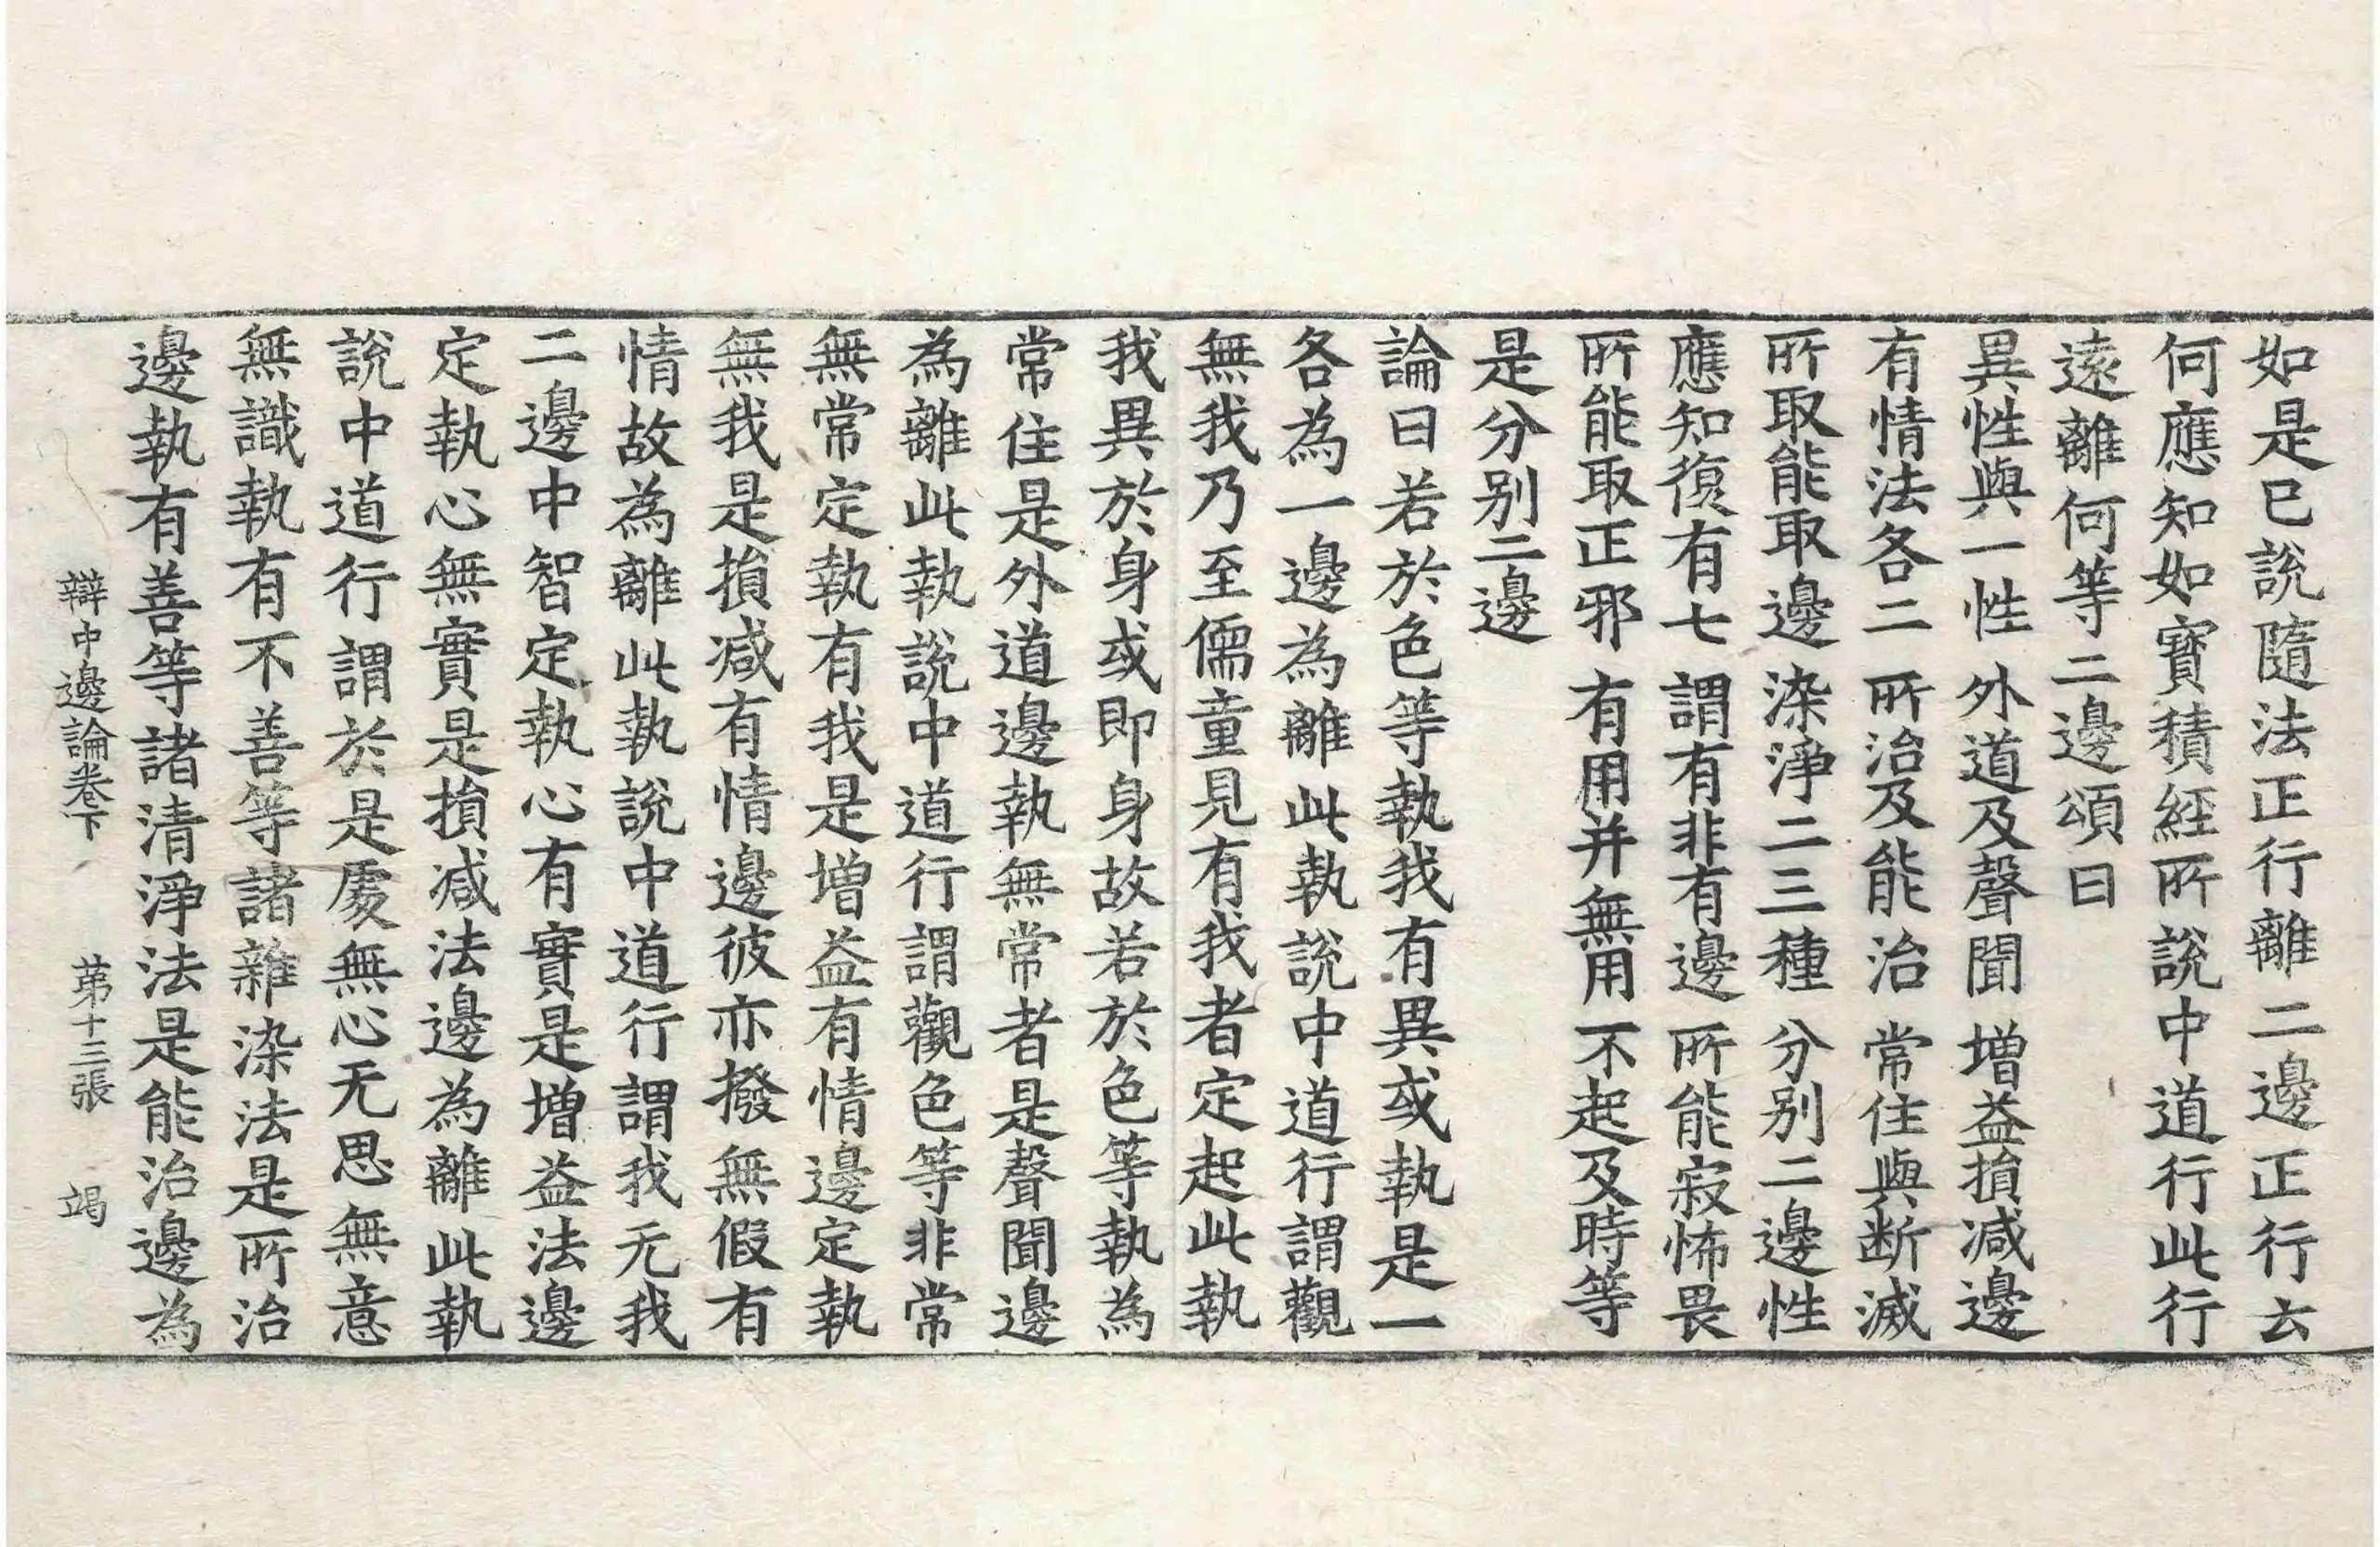 如是已說隨法正行離二邊正行云
何應知如寶積經所說中道行此行
遠離何等二邊頌曰
異性與一性 外道及聲聞 增益損減邊
有情法各二 所治及能治 常住與断滅
所取能取邊 染淨二三種 分別二邊性
應知復有七 謂有非有邊 所能寂怖畏
所能取正邪 有用并無用 不起及時等
是分別二邊
論曰若於色等執我有異或執是一
各為一邊為離此執說中道行謂觀
無我乃至儒童見有我者定起此執
我異於身或即身故若於色等執為
常住是外道邊執無常者是聲聞邊
為離此執說中道行謂觀色等非常
無常定執有我是增益有情邊定執
無我是損減有情邊彼亦撥無假有
情故為離此執說中道行謂我无我
二邊中智定執心有實是增益法邊
定執心無實是損減法邊為離此執
說中道行謂於是處無心无思無意
無識執有不善等諸雜染法是所治
邊執有善等諸清淨法是能治邊為
辯中邊論卷下 苐十三張 竭